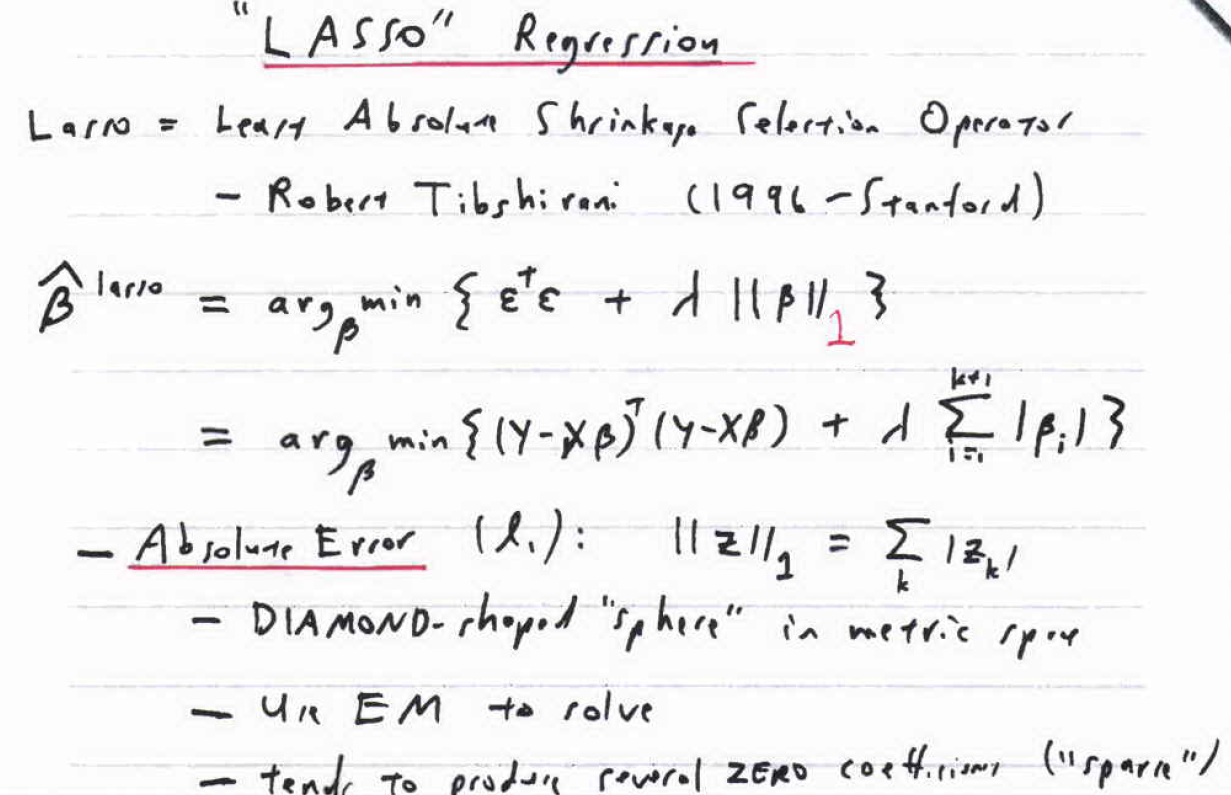 "LASSO" Regression
Lasso = Least Absolute Shrinkage Selection Operator
- Robert Tibshirani (1996 - Stanford)
β̂ ˡᵃˢˢᵒ = arg_β min { ε^T ε + λ ||β||_1 }
= arg_β min { (Y-Xβ)^T (Y-Xβ) + λ ∑_{i=1}^{k+1} |β_i| }
- Absolute Error (l_1): ||z||_1 = ∑_k |z_k|
- DIAMOND-shaped "sphere" in metric space
- Use EM to solve
- tends to produce several ZERO coefficients ("sparse")